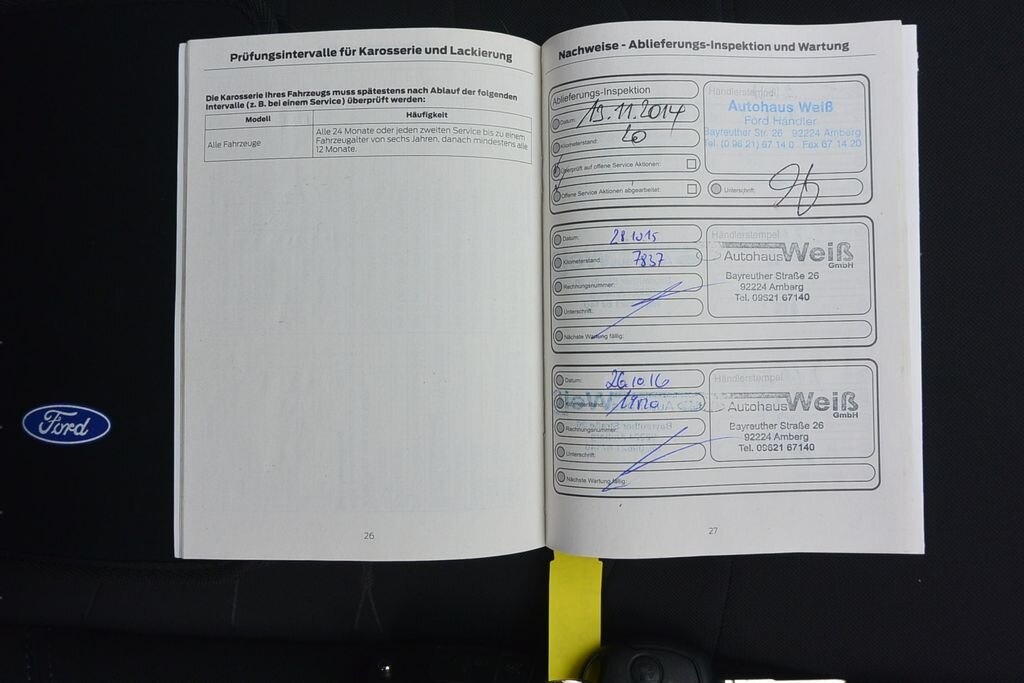 Prüfungsintervalle für Karosserie und Lackierung
Die Karosserie Ihres Fahrzeugs muss spätestens nach Ablauf der folgenden
Intervalle (z. B. bei einem Service) überprüft werden:
Modell Häufigkeit
Alle Fahrzeuge
Alle 24 Monate oder jeden zweiten Service bis zu einem
Fahrzeugalter von sechs Jahren, danach mindestens alle
12 Monate.
26
Nachweise - Ablieferungs-Inspektion und Wartung
Ablieferungs-Inspektion
Datum: 19.11.2014
Kilometerstand: 20
Überprüft auf offene Service Aktionen:
Offene Service Aktionen abgearbeitet:
Händlerstempel
Autohaus Weiß
Ford Händler
Bayreuther Str. 26 92224 Amberg
Tel. (0 96 21) 67 14 0 Fax 67 14 20
Unterschrift:
Datum: 28.10.15
Kilometerstand: 7837
Rechnungsnummer:
Unterschrift:
Nächste Wartung fällig:
Händlerstempel
Autohaus Weiß
GmbH
Bayreuther Straße 26
92224 Amberg
Tel. 09621 67140
Datum: 26.10.16
Kilometerstand:
Rechnungsnummer:
Unterschrift:
Nächste Wartung fällig:
Händlerstempel
Autohaus Weiß
GmbH
Bayreuther Straße 26
92224 Amberg
Tel. 09621 67140
27
Ford